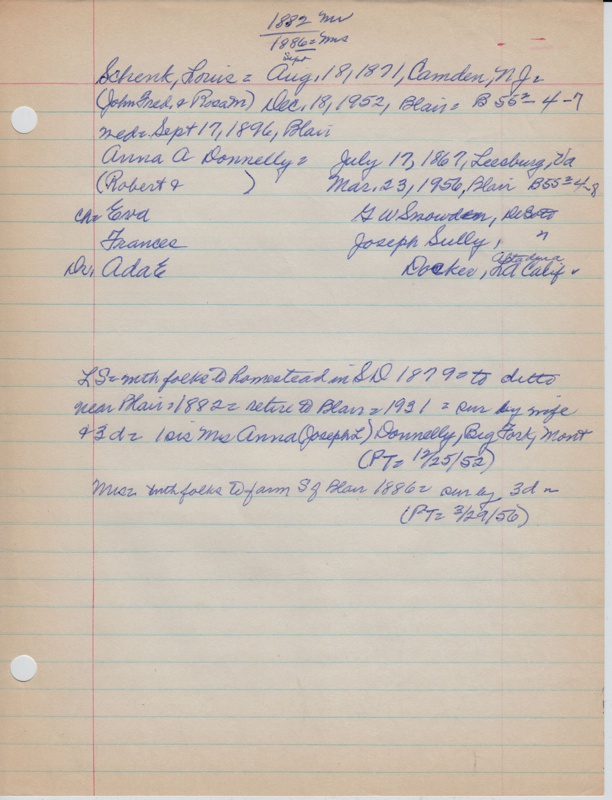 1882 Mr
1886 = Mrs
Sept
Schenk, Louis = Aug. 18, 1871, Camden, N.J. =
(John Fred, & Rosa M) Dec. 18, 1952, Blair = B 55² - 4 - 7
med = Sept 17, 1896, Blair
Anna A Donnelly = July 17, 1867, Leesburg, Va
(Robert & ) Mar. 23, 1956, Blair B55² 4-8
ch = Eva G W Snowden,
Frances Joseph Sully, "
Dr. Ada E Docker, LA Calif
Altadena
LS = with folks to homestead in S D 1879 = to ditto
near Blair = 1882 = retire to Blair = 1931 = sur by wife
& 3 d = 1 sis Mrs Anna (Joseph L) Donnelly, Big Fork, Mont
(PT = 12/25/52)
Mrs = with folks to farm S of Blair 1886 = sur by 3 d =
(PT = 3/29/56)